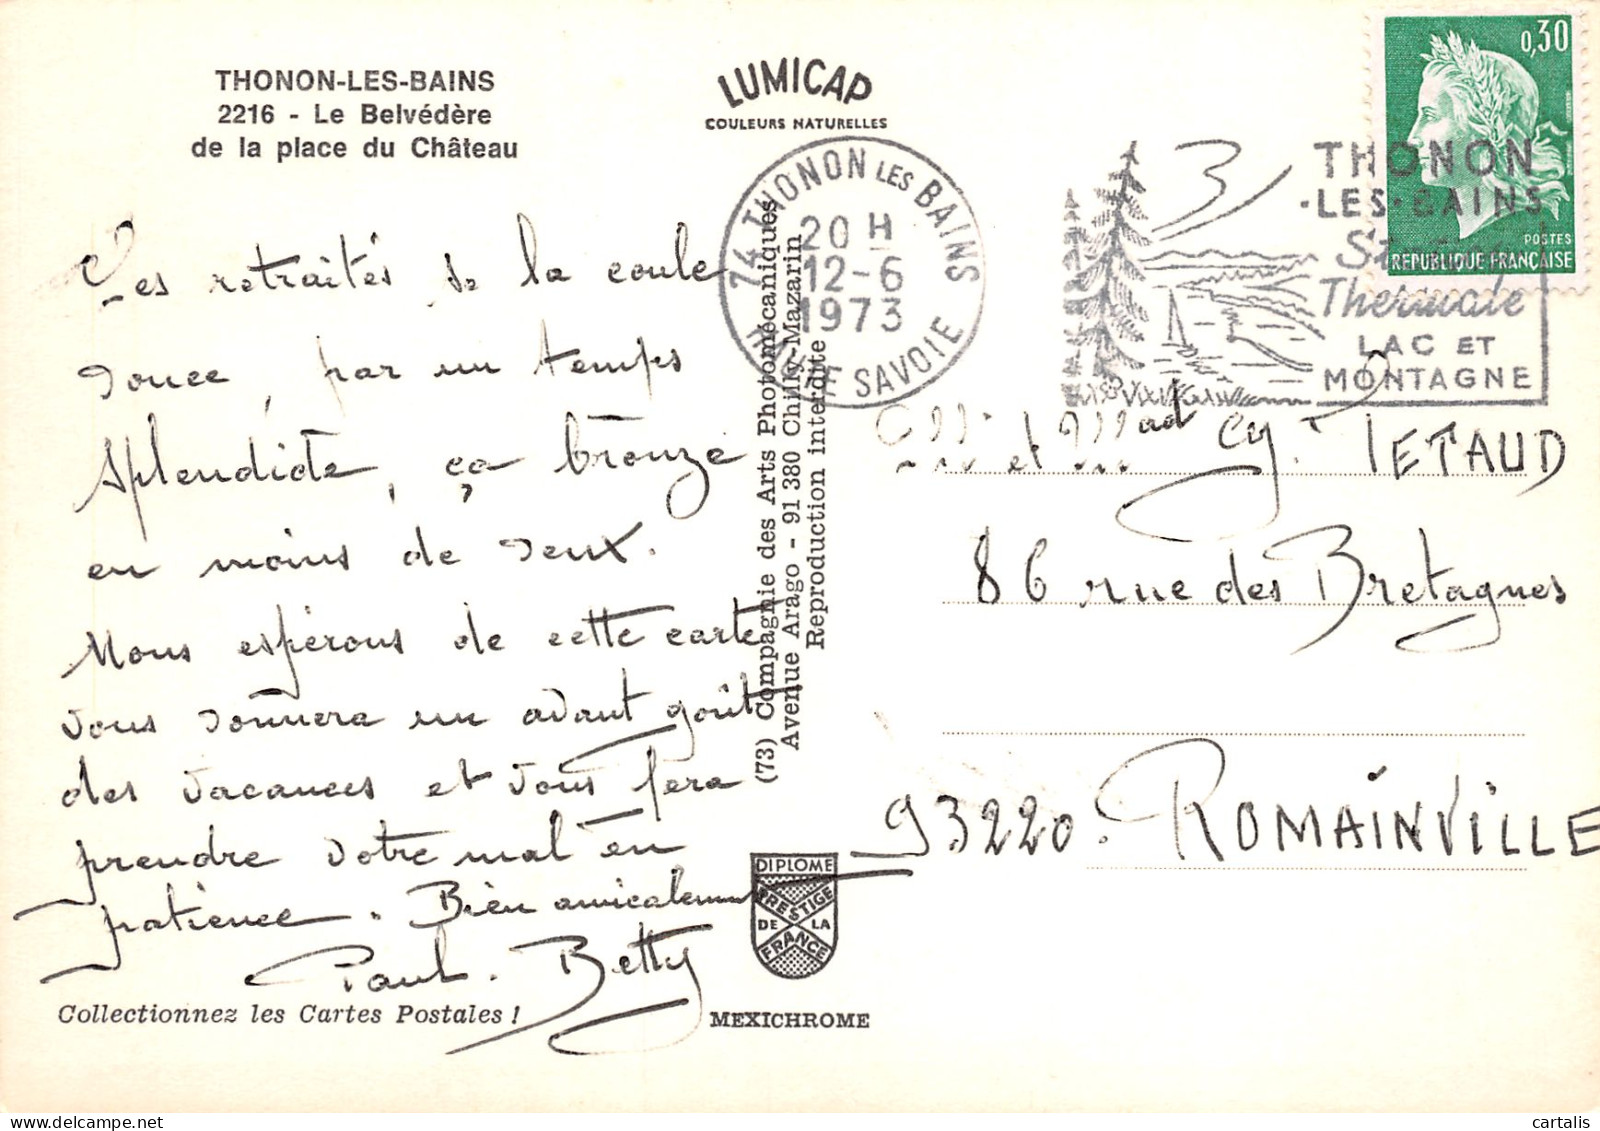 THONON-LES-BAINS
2216 - Le Belvédère
de la place du Château
LUMICAP
COULEURS NATURELLES
0,30
POSTES
REPUBLIQUE FRANÇAISE
74 THONON LES BAINS
20 H
12-6
1973
HAUTE SAVOIE
THONON
·LES·BAINS
Station
Thermale
LAC ET
MONTAGNE
Les retraités se la coule
douce, par un temps
splendide, ça bronze
en moins de deux.
Nous espérons de cette carte
vous donnera un avant goût
des vacances et vous fera
prendre votre mal en
patience. Bien amicalement
Paul. Betty
(73) Compagnie des Arts Photomécaniques
Avenue Arago - 91 380 Chilly-Mazarin
Reproduction interdite
et Mad Cy. TETAUD
86 rue des Bretagnes
93220. ROMAINVILLE
DIPLOME
PRESTIGE
DE LA
FRANCE
Collectionnez les Cartes Postales !
MEXICHROME
cartalis
delcampe.net